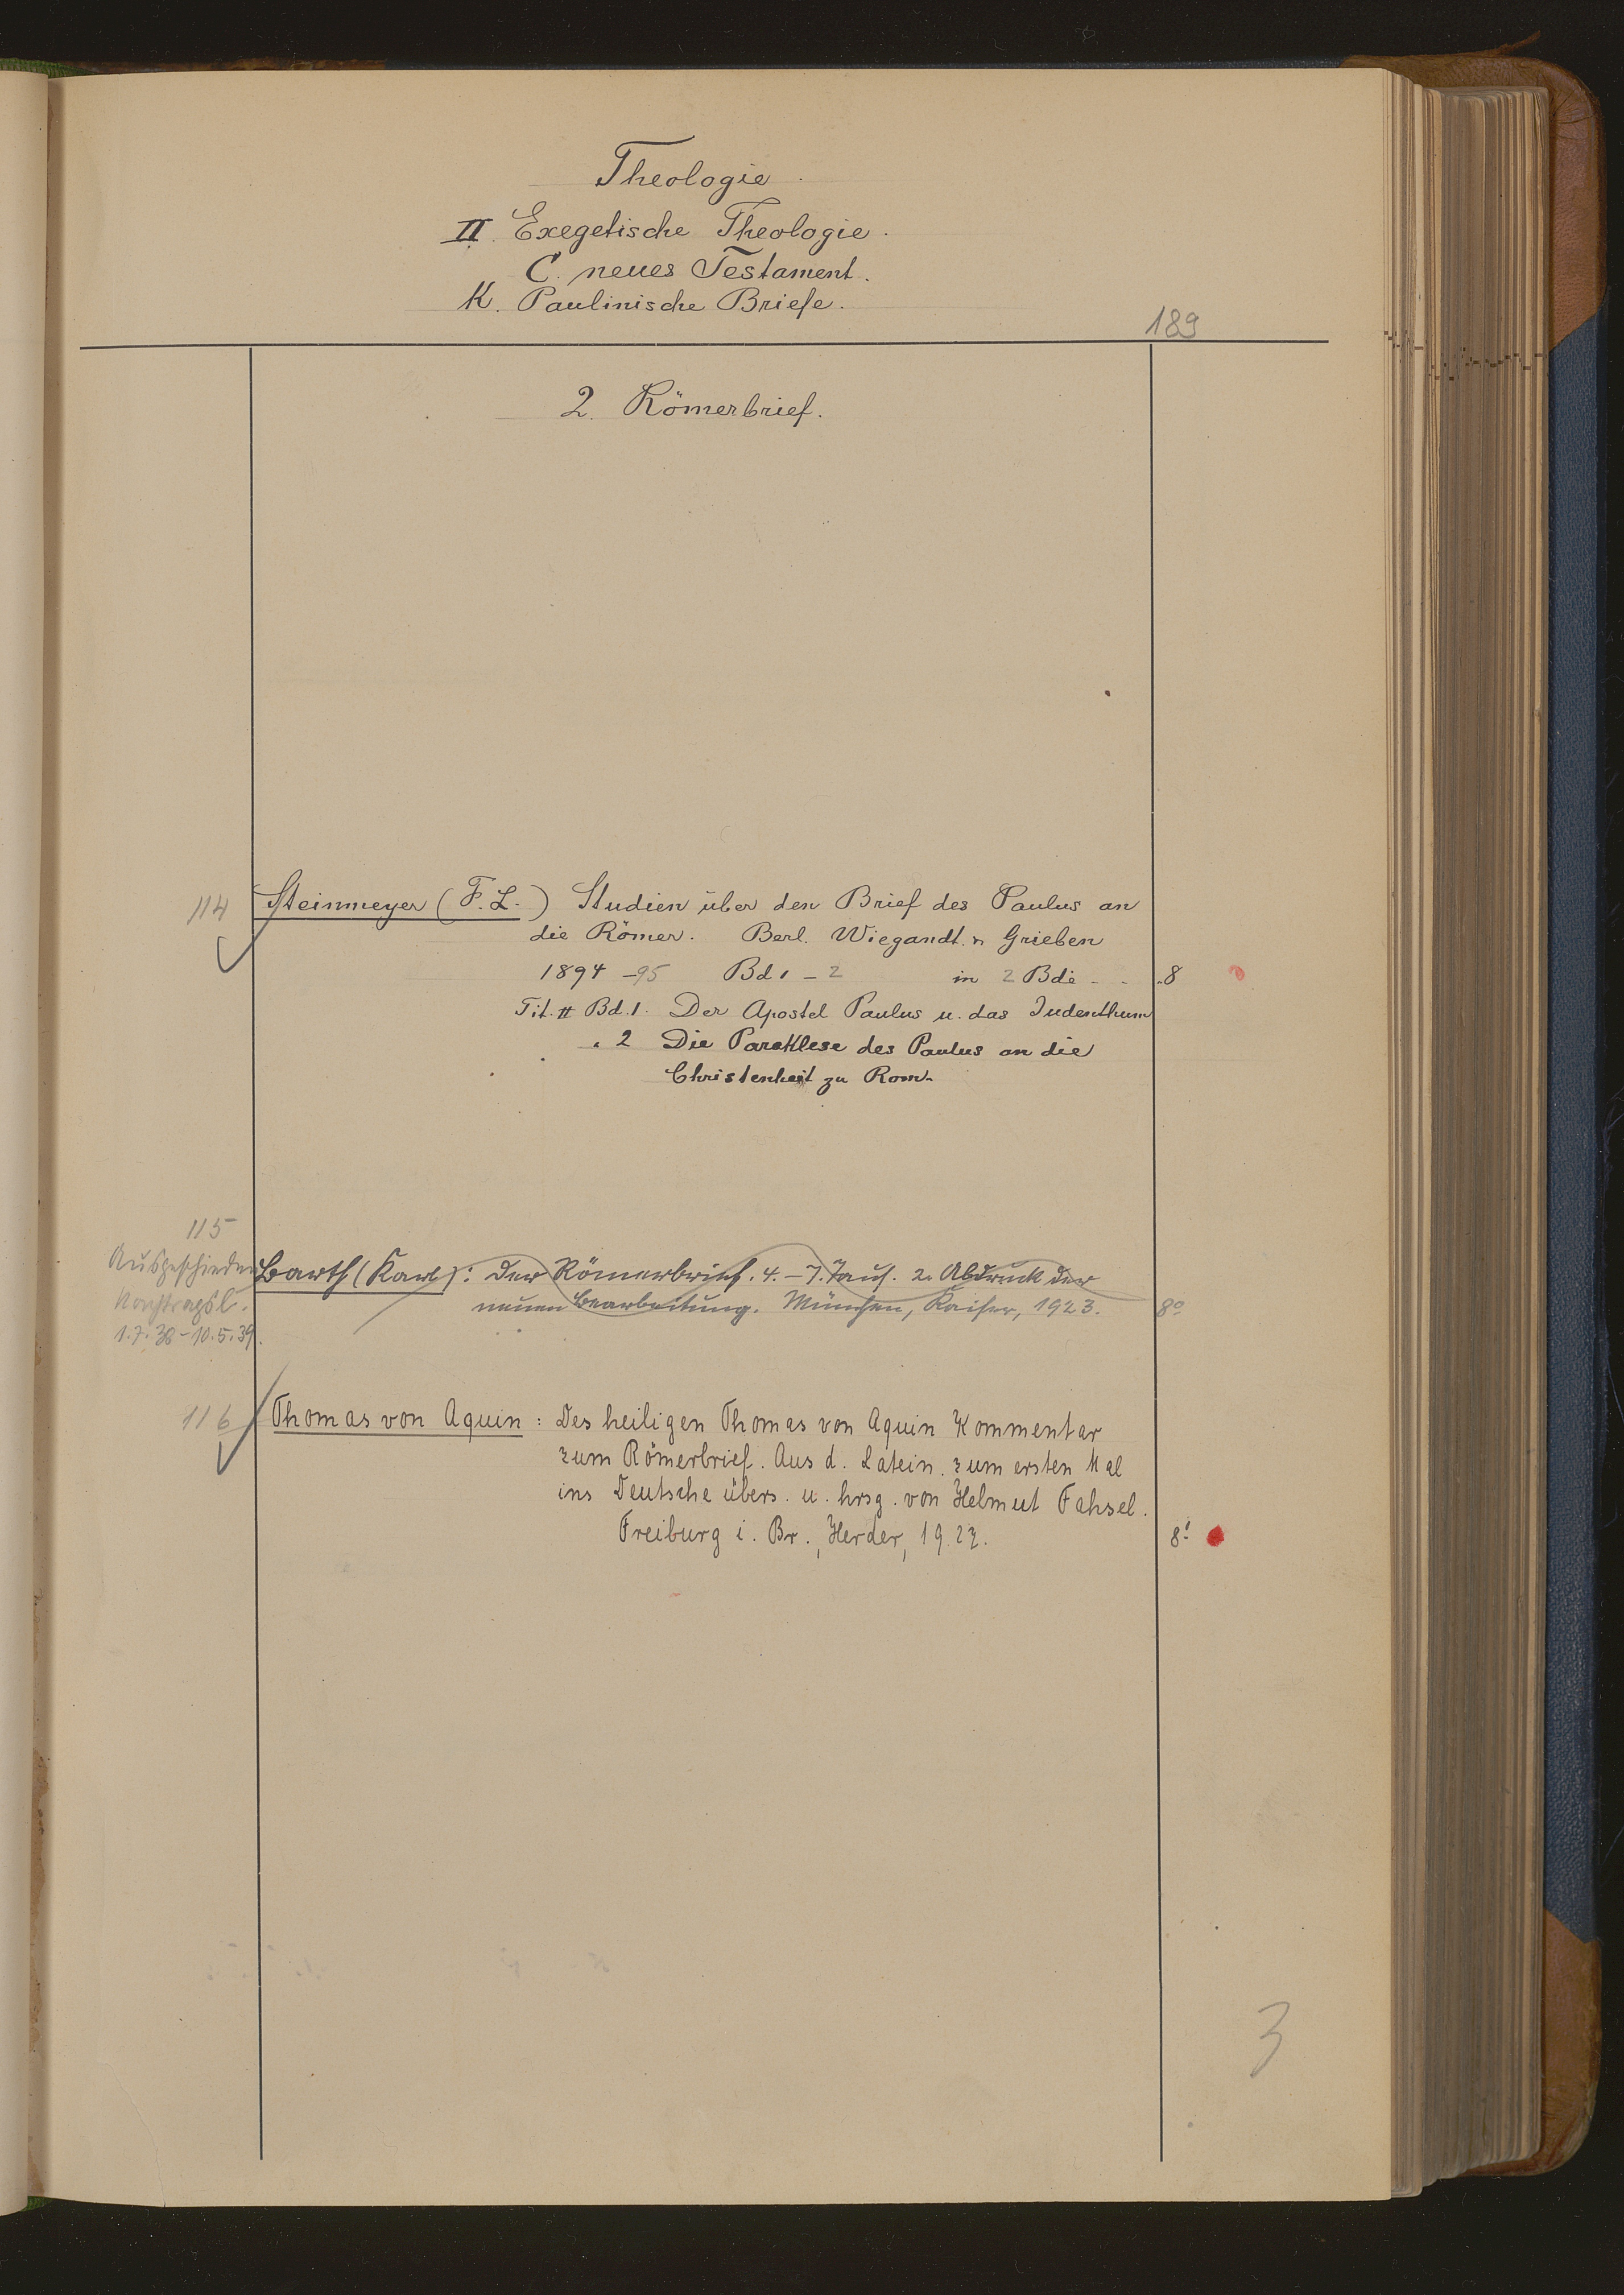 Theologie.
II. Exegetische Theologie.
C. neues Testament.
K. Paulinische Briefe.
189
2. Römerbrief.
114 Steinmeyer (F. L.) Studien über den Brief des Paulus an
die Römer. Berl. Wiegandt. & Grieben
1894 -95 Bd 1 - 2 in 2 Bde - - 8
Tit. II Bd. 1. Der Apostel Paulus u. das Judenthum
" 2 Die Paraklese des Paulus an die
Christenheit zu Rom.
115
Ausgeschieden Barth (Karl): Der Römerbrief. 4. - 7. Taus. 2. Abdruck der
Nachtragsl. neuen Bearbeitung. München, Kaiser, 1923. 8°
1.7.38-10.5.39.
116 Thomas von Aquin: Des heiligen Thomas von Aquin Kommentar
zum Römerbrief. Aus d. Latein. zum ersten Mal
ins Deutsche übers. u. hrsg. von Helmut Fahsel.
Freiburg i. Br., Herder, 1927. 8°
3